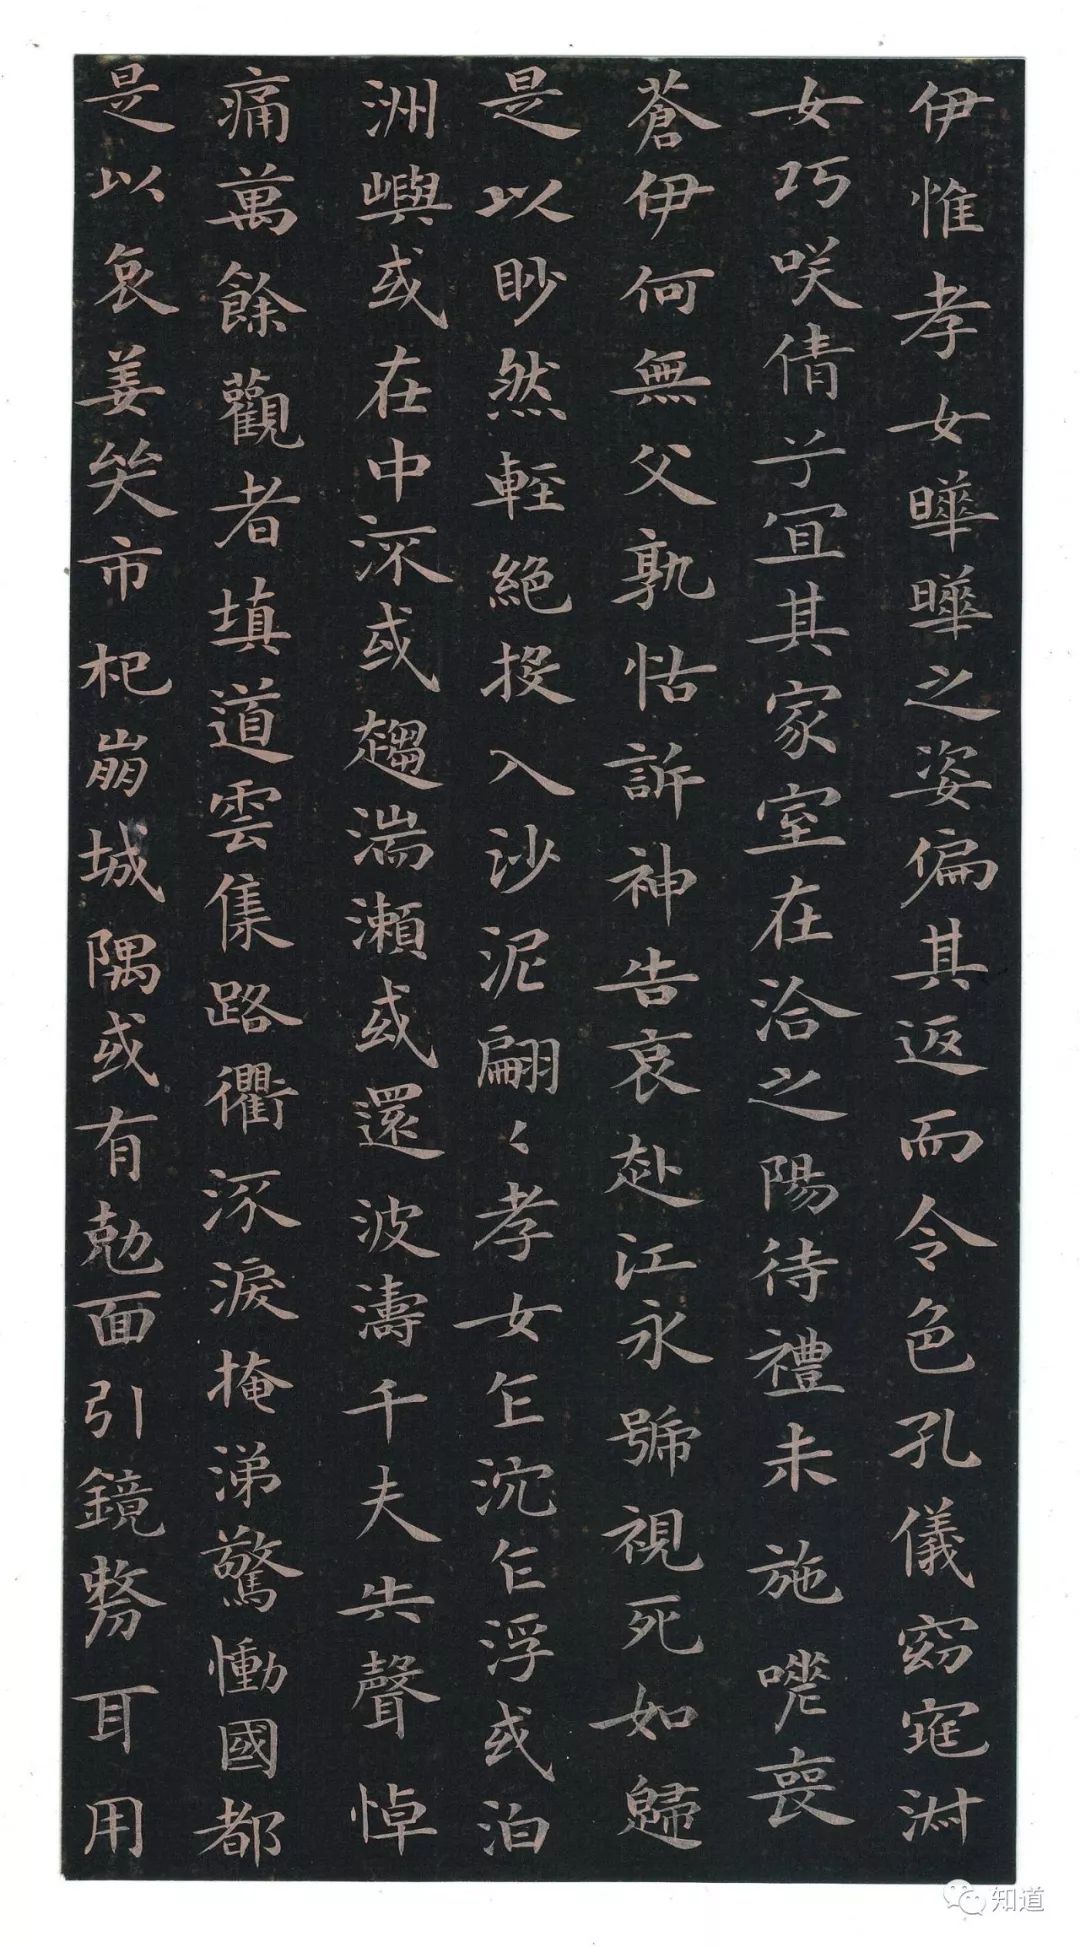 伊惟孝女曄曄之姿偏其返而令色孔儀窈窕淑
女巧咲倩兮宜其家室在洽之陽待禮未施嗟喪
蒼伊何無父孰怙訴神告哀赴江永號視死如歸
是以眇然輕絕投入沙泥翩々孝女乍沈乍浮或泊
洲嶼或在中流或趨湍瀨或還波濤千夫失聲悼
痛萬餘觀者填道雲集路衢流淚掩涕驚慟國都
是以哀姜哭市杞崩城隅或有剋面引鏡剺耳用
知道